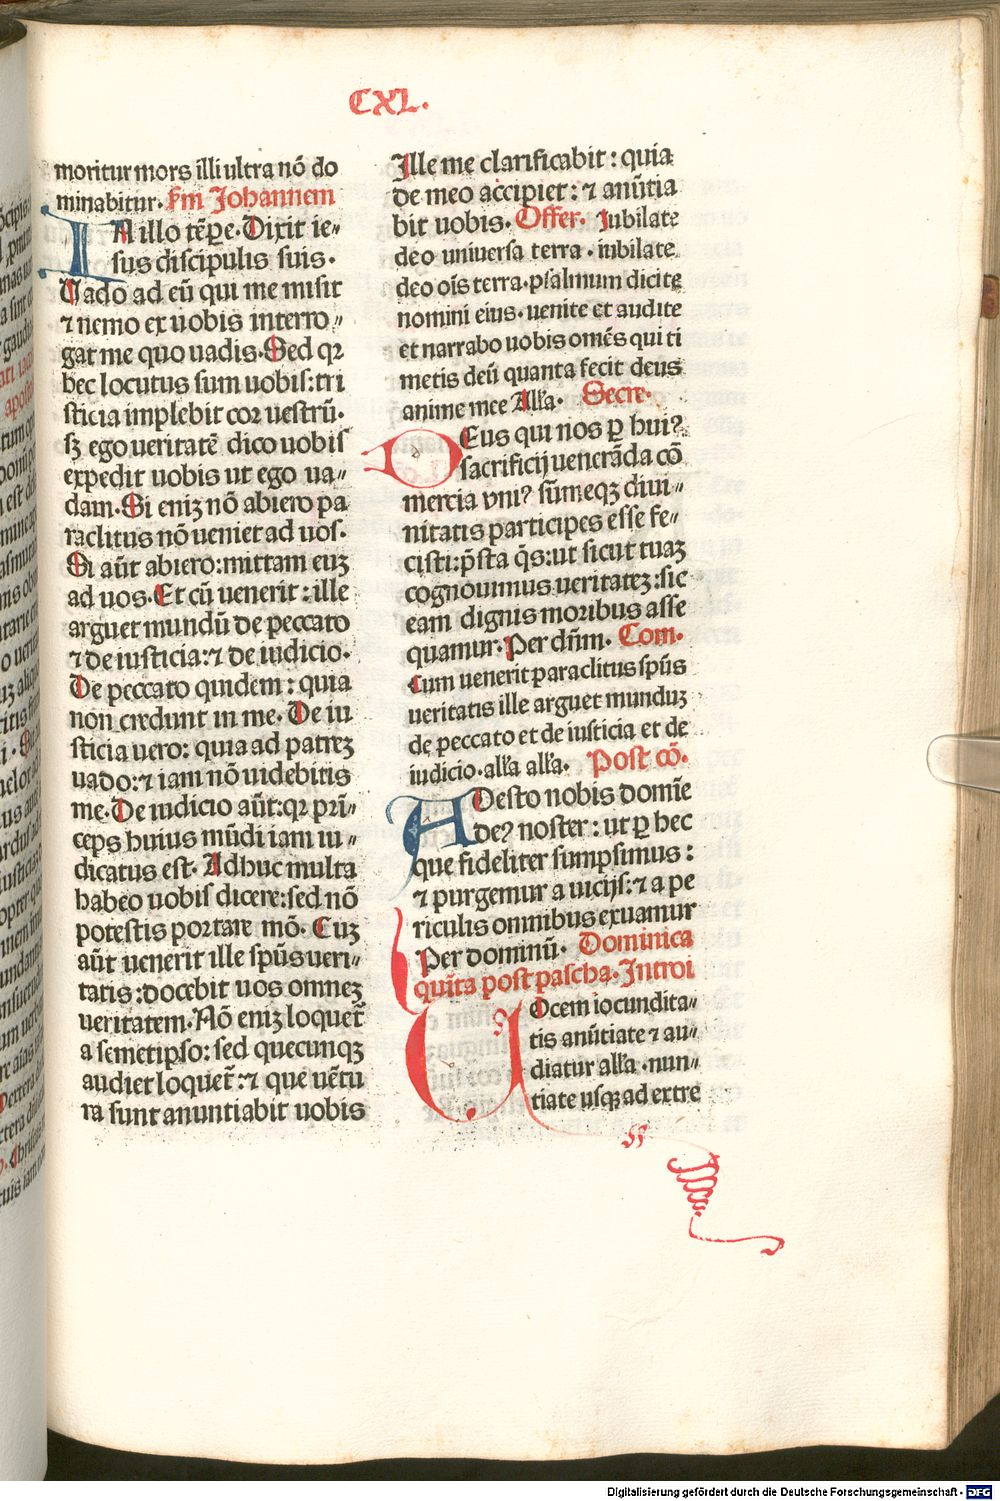 CXL.
moritur mors illi ultra nō do
minabitur. ẜm Johannem
IN illo tēꝑe. Dixit ie⸗
sus discipulis suis.
Vado ad eū qui me misit
⁊ nemo ex uobis interro⸗
gat me quo uadis. Sed qꝛ
hec locutus sum uobis: tri
sticia impleuit cor uestrū.
sꝫ ego ueritatē dico uobis
expedit uobis ut ego ua⸗
dam. Si eniꝫ nō abiero pa
raclitus nō ueniet ad uos.
Si aūt abiero: mittam euꝫ
ad uos. Et cū uenerit: ille
arguet mundū de peccato
⁊ de iusticia: ⁊ de iudicio.
De peccato quidem: quia
non credunt in me. De iu
sticia uero: quia ad patreꝫ
uado: ⁊ iam nō uidebitis
me. De iudicio aūt: qꝛ prī⸗
ceps huius mūdi iam iu⸗
dicatus est. Adhuc multa
habeo uobis dicere: sed nō
potestis portare mō. Cuꝫ
aūt uenerit ille spūs ueri⸗
tatis: docebit uos omneꝫ
veritatem. Nō eniꝫ loquet̄
a semetipso: sed quecunqꝫ
audiet loquet̄: ⁊ que uētu
ra sunt anuntiabit uobis
Ille me clarificabit: quia
de meo accipiet: ⁊ anūtia
bit uobis. Offer. Iubilate
deo uniuersa terra. iubilate
deo oīs terra. psalmum dicite
nomini eius. uenite et audite
et narrabo uobis omēs qui ti
metis deū quanta fecit deus
anime mee Alla. Secre.
DEus qui nos ꝑ huiꝰ
sacrificij uenerāda cō
mercia vniꝰ sūmeqꝫ diui⸗
nitatis participes esse fe⸗
cisti: p̄sta q̄s: ut sicut tuaꝫ
cognouimus ueritateꝫ: sic
eam dignis moribus asse
quamur. Per dn̄m. Com.
Cum uenerit paraclitus spūs
ueritatis ille arguet munduꝫ
de peccato et de iusticia et de
iudicio. alla alla. Post cō.
ADesto nobis domīe
deꝰ noster: ut ꝑ hec
que fideliter sumpsimus:
⁊ purgemur a uicijs: ⁊ a pe
riculis omnibus exuamur
Per dominū. Dominica
quīta post pascha. Introi
VOcem iocundita⸗
tis anūtiate ⁊ au⸗
diatur alla. nun⸗
tiate usqꝫ ad extre
Digitalisierung gefördert durch die Deutsche Forschungsgemeinschaft - DFG